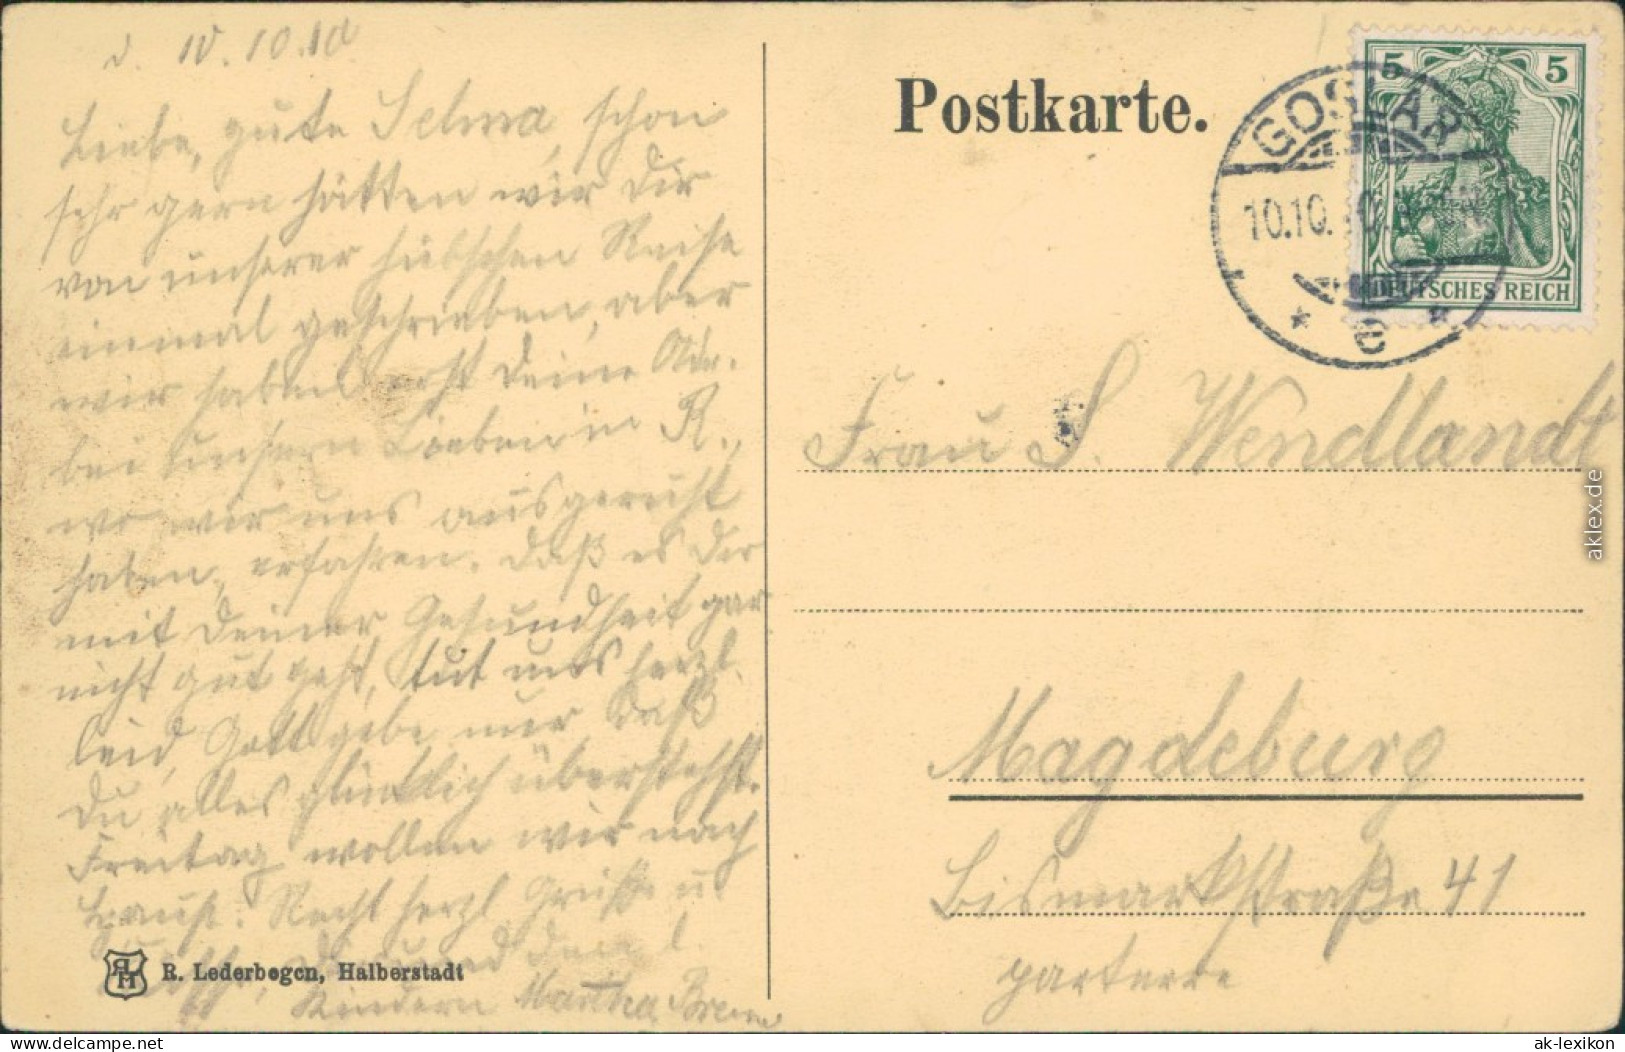 d. 10.10.10
Liebe, gute Selma, schon
sehr gern hätten wir Dir
von unserer hübschen Reise
einmal geschrieben, aber
wir haben erst Deine Adr.
bei unsern Lieben in R.,
wo wir uns ausgeruht
haben, erfahren. Daß es Dir
mit Deiner Gesundheit gar
nicht gut geht, tut uns herzl.
leid, Gott gebe nur daß
Du alles glücklich überstehst.
Freitag wollen wir nach
Hause. Recht herzl Grüße u.
Dir und dein l.
Kindern Martha
R. Lederbogen, Halberstadt
Postkarte.
5 5
DEUTSCHES REICH
GOSLAR
10.10.10.
* c *
Frau S. Wendlandt
Magdeburg
Bismarkstraße 41
parterre
aklex.de
© ak-lexikon